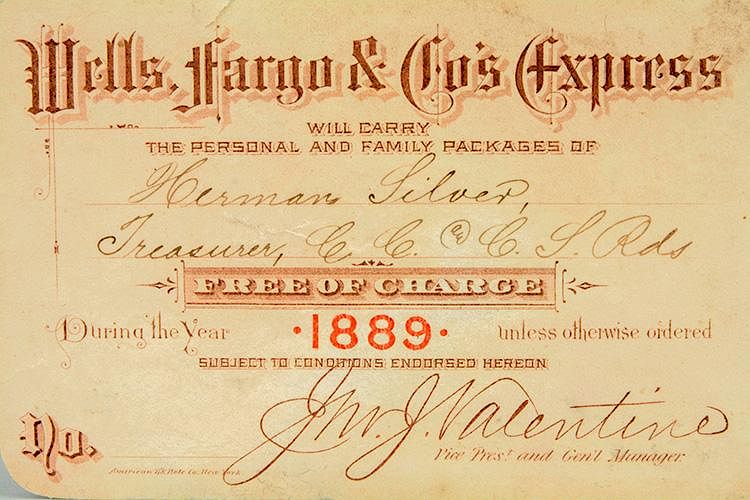 Wells, Fargo & Co's Express
WILL CARRY
THE PERSONAL AND FAMILY PACKAGES OF
Herman Silver,
Treasurer, C. C. & C. S. Rds
FREE OF CHARGE
During the Year ·1889· unless otherwise ordered
SUBJECT TO CONDITIONS ENDORSED HEREON
Jno. J. Valentine
Vice Prest. and Gen'l Manager
No.
American Bk Note Co. New York.